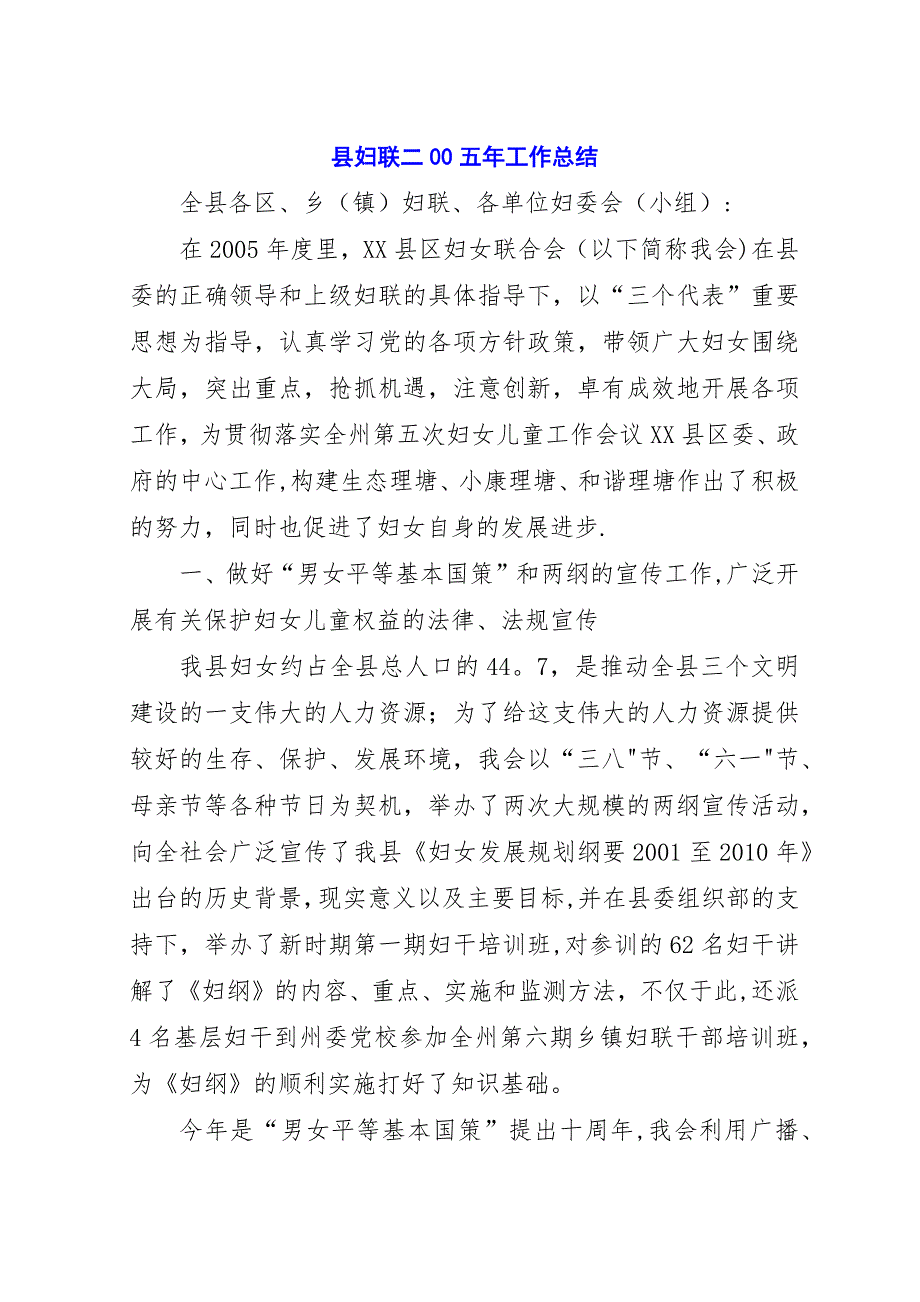 县妇联二 00 五年工作总结
全县各区、乡（镇）妇联、各单位妇委会（小组）:
在 2005 年度里，XX 县区妇女联合会（以下简称我会)在县
委的正确领导和上级妇联的具体指导下，以“三个代表”重要
思想为指导，认真学习党的各项方针政策，带领广大妇女围绕
大局，突出重点，抢抓机遇，注意创新，卓有成效地开展各项
工作，为贯彻落实全州第五次妇女儿童工作会议 XX 县区委、政
府的中心工作,构建生态理塘、小康理塘、和谐理塘作出了积极
的努力，同时也促进了妇女自身的发展进步.
一、做好“男女平等基本国策”和两纲的宣传工作,广泛开
展有关保护妇女儿童权益的法律、法规宣传
我县妇女约占全县总人口的 44。7，是推动全县三个文明
建设的一支伟大的人力资源；为了给这支伟大的人力资源提供
较好的生存、保护、发展环境，我会以“三八"节、“六一"节、
母亲节等各种节日为契机，举办了两次大规模的两纲宣传活动，
向全社会广泛宣传了我县《妇女发展规划纲要 2001 至 2010 年》
出台的历史背景,现实意义以及主要目标,并在县委组织部的支
持下，举办了新时期第一期妇干培训班,对参训的 62 名妇干讲
解了《妇纲》的内容、重点、实施和监测方法，不仅于此,还派
4 名基层妇干到州委党校参加全州第六期乡镇妇联干部培训班，
为《妇纲》的顺利实施打好了知识基础。
今年是“男女平等基本国策”提出十周年,我会利用广播、